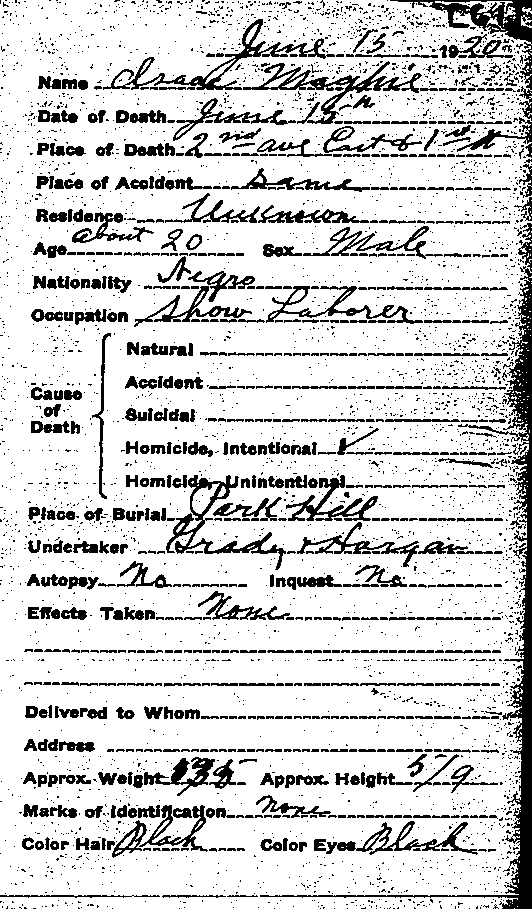 June 15 1920
Name Isaac Maghie
Date of Death June 15th
Place of Death 2nd ave East & 1st St
Place of Accident same
Residence Unknown
Age about 20 Sex Male
Nationality Negro
Occupation Show Laborer
Cause of Death
Natural
Accident
Suicidal
Homicide, Intentional ✓
Homicide, Unintentional
Place of Burial Park Hill
Undertaker Grady & Horgan
Autopsy No Inquest No
Effects Taken None
Delivered to Whom
Address
Approx. Weight Approx. Height 5/9
Marks of Identification none
Color Hair Black Color Eyes Black